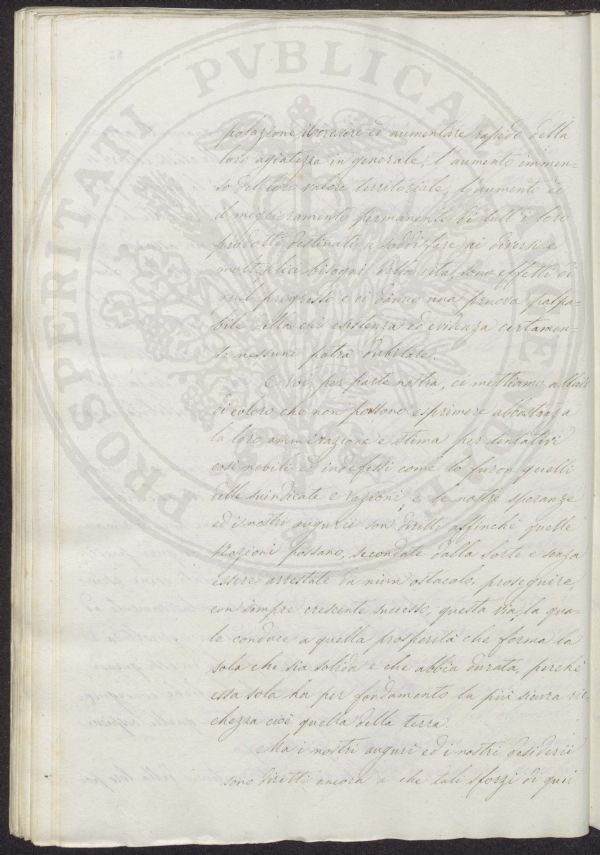 PROSPERITATI PVBLICAE AVGENDAE
polazione, il crescere ed aumentare rapido della
loro agiatezza in generale, l'aumento immen-
so del loro valore territoriale, l'aumento ed
il miglioramento permanente di tutt'i loro
prodotti destinati a soddisfare ai diversi e
molteplici bisogni della vita, sono effetti di
quel progresso e ci danno una pruova palpa-
bile della cui esistenza ed evidenza certamen-
te nessuno potrà dubitare.
E noi, per parte nostra, ci mettiamo
di coloro che non possono esprimere abbastanza
la loro ammirazione e stima per tentativi
così nobili ed indefessi come lo furon quelli
delle suindicate e le nostre speranze
ed i nostri augurii son diretti affinchè quelle
Nazioni possano, secondate dalla sorte e senza
essere arrestate da niun ostacolo, proseguire,
con sempre crescente successo, questa via, la qua-
le conduce a quella prosperità che forma la
sola che sia solida e che abbia durata, perchè
essa sola ha per fondamento la più sicura ric-
chezza cioè quella della terra.
Ma i nostri auguri ed i nostri desiderii
sono diretti ancora a che tali sforzi di quei